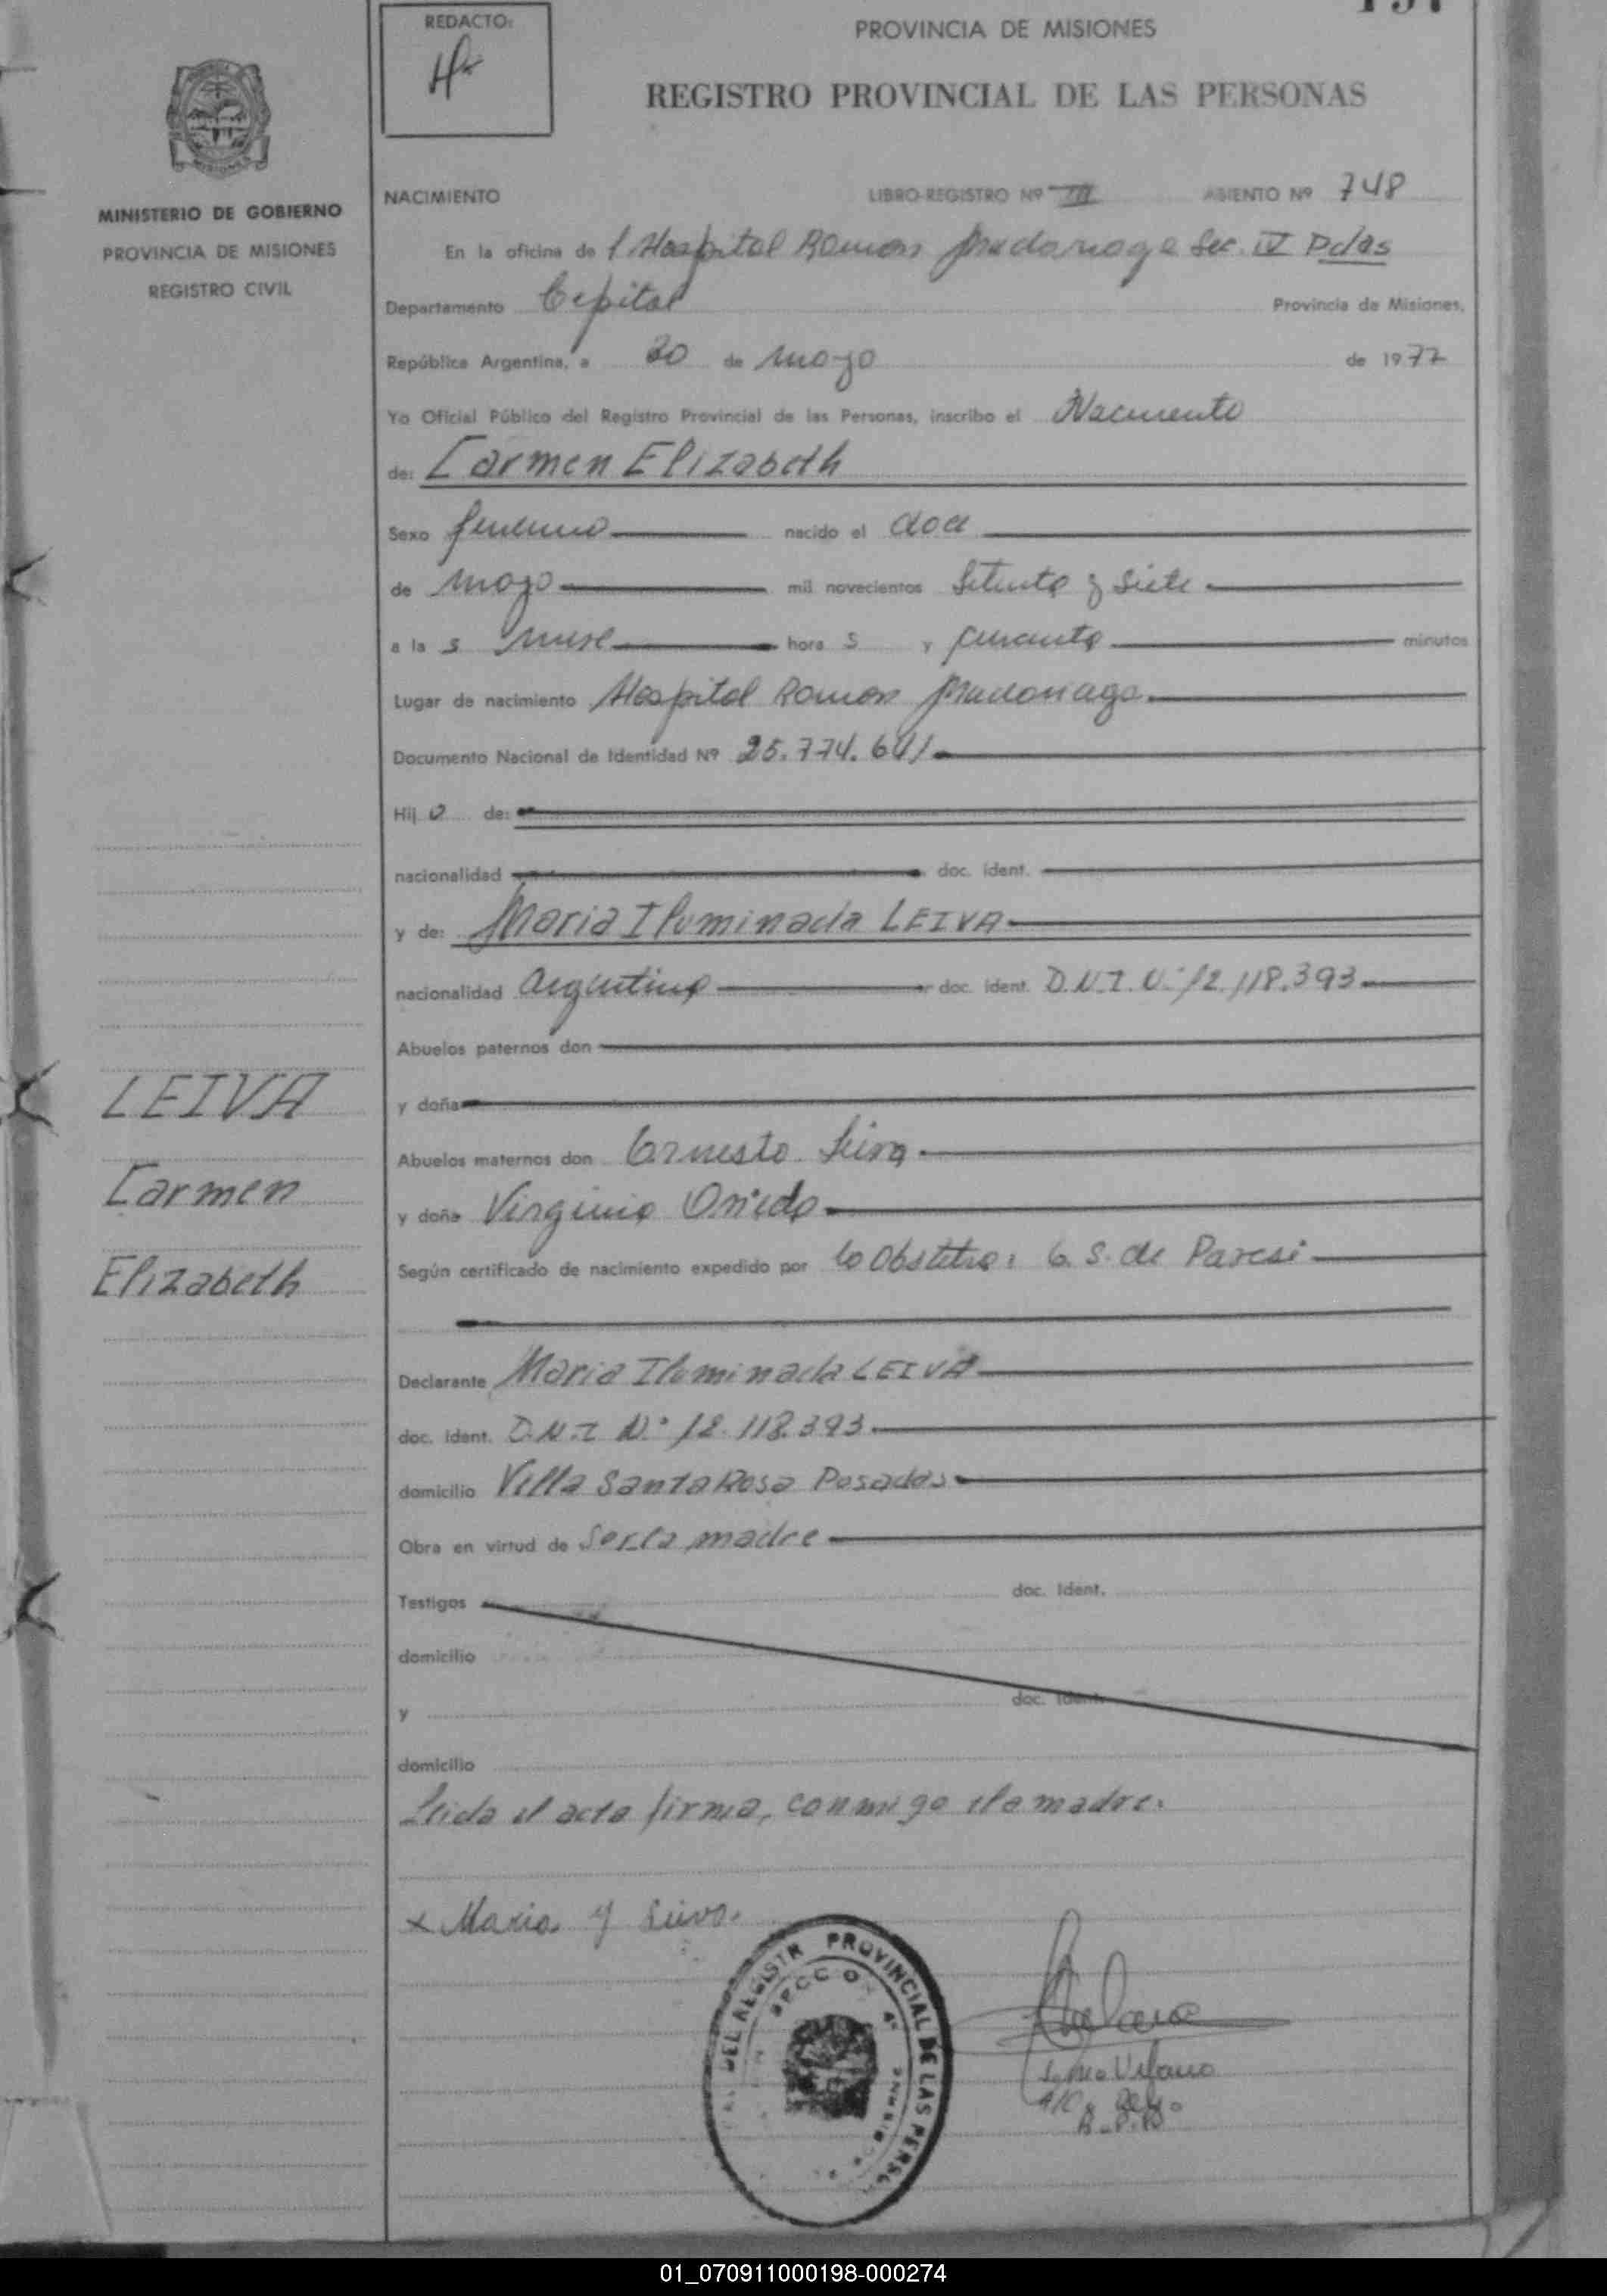 REDACTO:
PROVINCIA DE MISIONES
REGISTRO PROVINCIAL DE LAS PERSONAS
MINISTERIO DE GOBIERNO
PROVINCIA DE MISIONES
REGISTRO CIVIL
NACIMIENTO LIBRO-REGISTRO Nº III ASIENTO Nº 748
En la oficina de l Hospital Ramon Madariaga Sec. IV Pdas
Departamento Capital Provincia de Misiones,
República Argentina, a 30 de mayo de 1977
Yo Oficial Público del Registro Provincial de las Personas, inscribo el Nacimiento
de: Carmen Elizabeth
Sexo femenino nacido el doce
de mayo mil novecientos Setenta y Siete
a la s nueve hora s y cuarenta minutos
Lugar de nacimiento Hospital Ramon Madariaga.
Documento Nacional de Identidad Nº 25.774.641
Hij a de:
nacionalidad doc. ident.
y de: Maria Iluminada LEIVA
nacionalidad argentina doc. ident. D.N.I. Nº 12.118.393
Abuelos paternos don
y doña
LEIVA
Carmen
Elizabeth
Abuelos maternos don Ernesto Leiva
y doña Virginia Oviedo
Según certificado de nacimiento expedido por la Obstetra: G. S. de Paresi
Declarante Maria Iluminada LEIVA
doc. ident. D.N.I Nº 12.118.393
domicilio Villa Santa Rosa Posadas
Obra en virtud de Ser la madre
Testigos doc. Ident.
domicilio
y doc. Ident.
domicilio
Leida el acta firma, conmigo la madre.
x Maria Y Leiva.
DEL REGISTR PROVINCIAL DE LAS PERSO
01_070911000198-000274